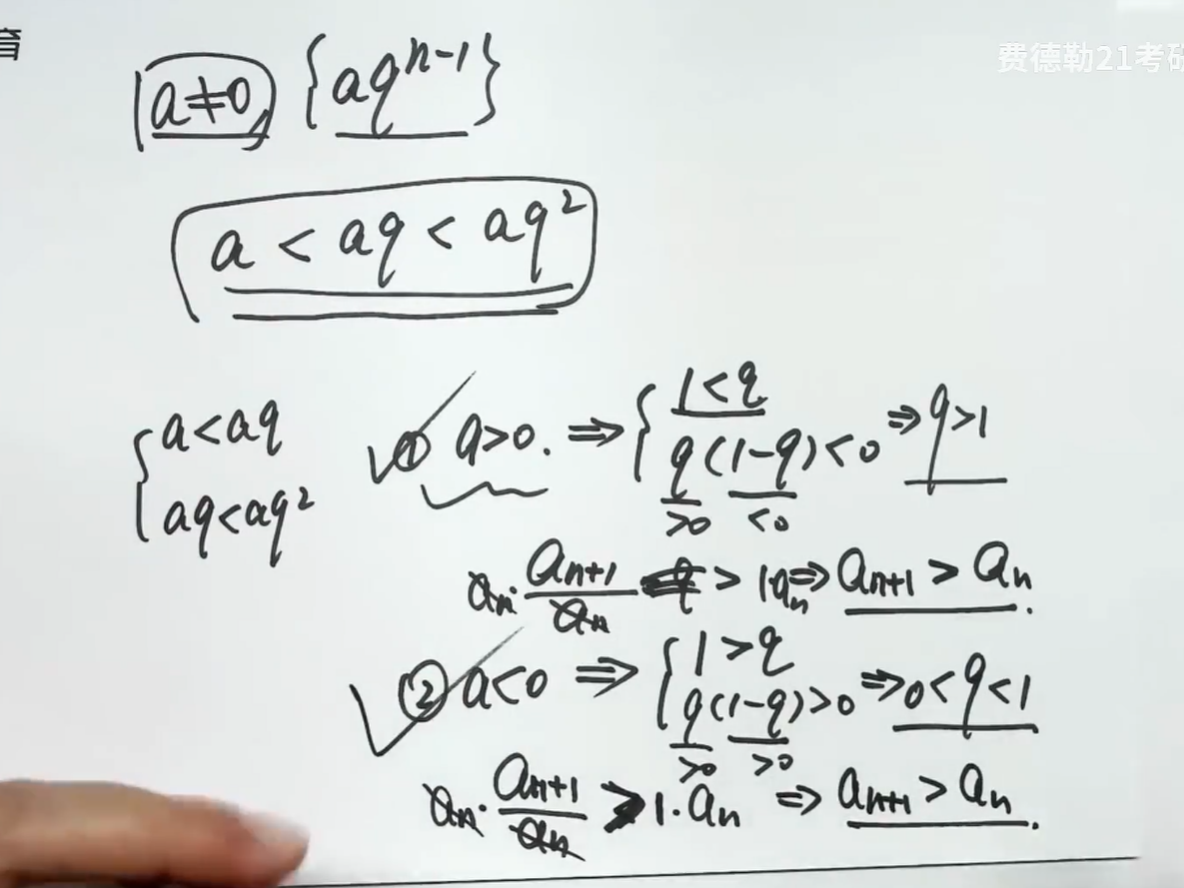 育
费德勒21考研
a≠0, {aqⁿ⁻¹}
a < aq < aq²
{ a<aq
aq<aq²
① a>0. ⇒ { 1<q
q(1-q)<0 ⇒ q>1
>0 <0
aₙ· aₙ₊₁/aₙ > 1·aₙ ⇒ aₙ₊₁ > aₙ.
② a<0 ⇒ { 1>q
q(1-q)>0 ⇒ 0<q<1
>0 >0
aₙ· aₙ₊₁/aₙ > 1·aₙ ⇒ aₙ₊₁ > aₙ.